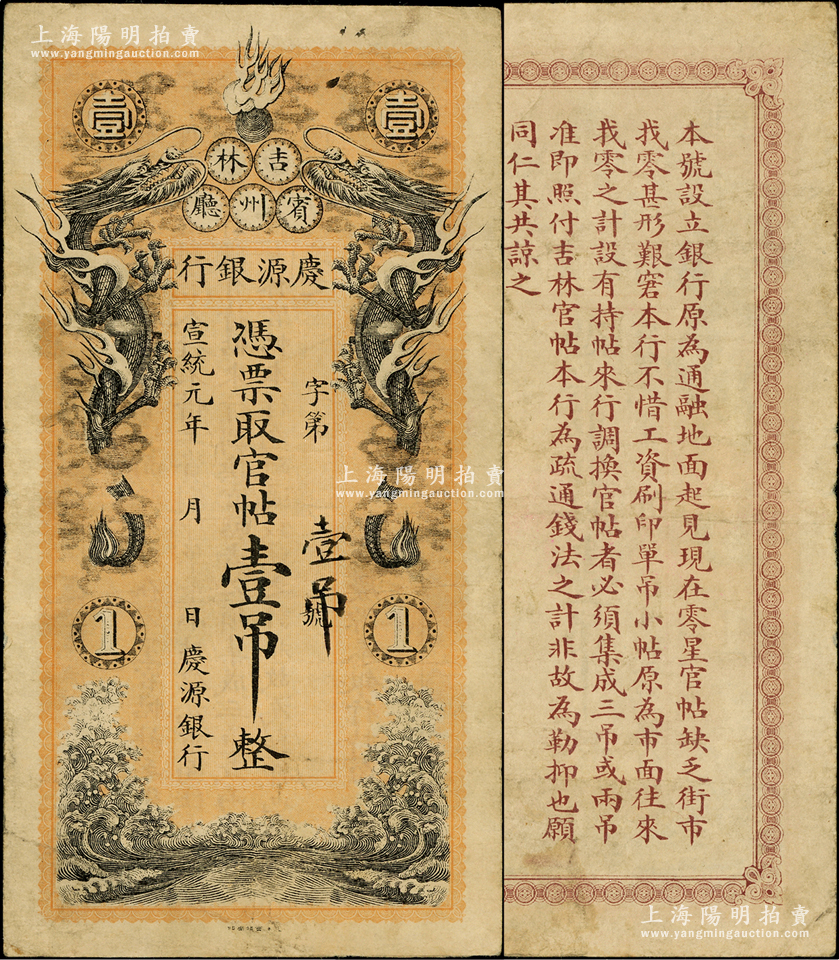 上海陽明拍賣
www.yangmingauction.com
壹
壹
吉林
賓州廳
慶源銀行
字第
壹吊
號
憑票取官帖壹吊整
宣統元年 月 日 慶源銀行
1
1
上海陽明拍賣
www.yangmingauction.com
本號設立銀行原為通融地面起見現在零星官帖缺乏街市
找零甚形艱窘本行不惜工資刷印單吊小帖原為市面往來
找零之計設有持帖來行調換官帖者必須集成三吊或兩吊
准即照付吉林官帖本行為疏通錢法之計非故為勒抑也願
同仁其共諒之
上海陽明拍賣
www.yangmingauction.com